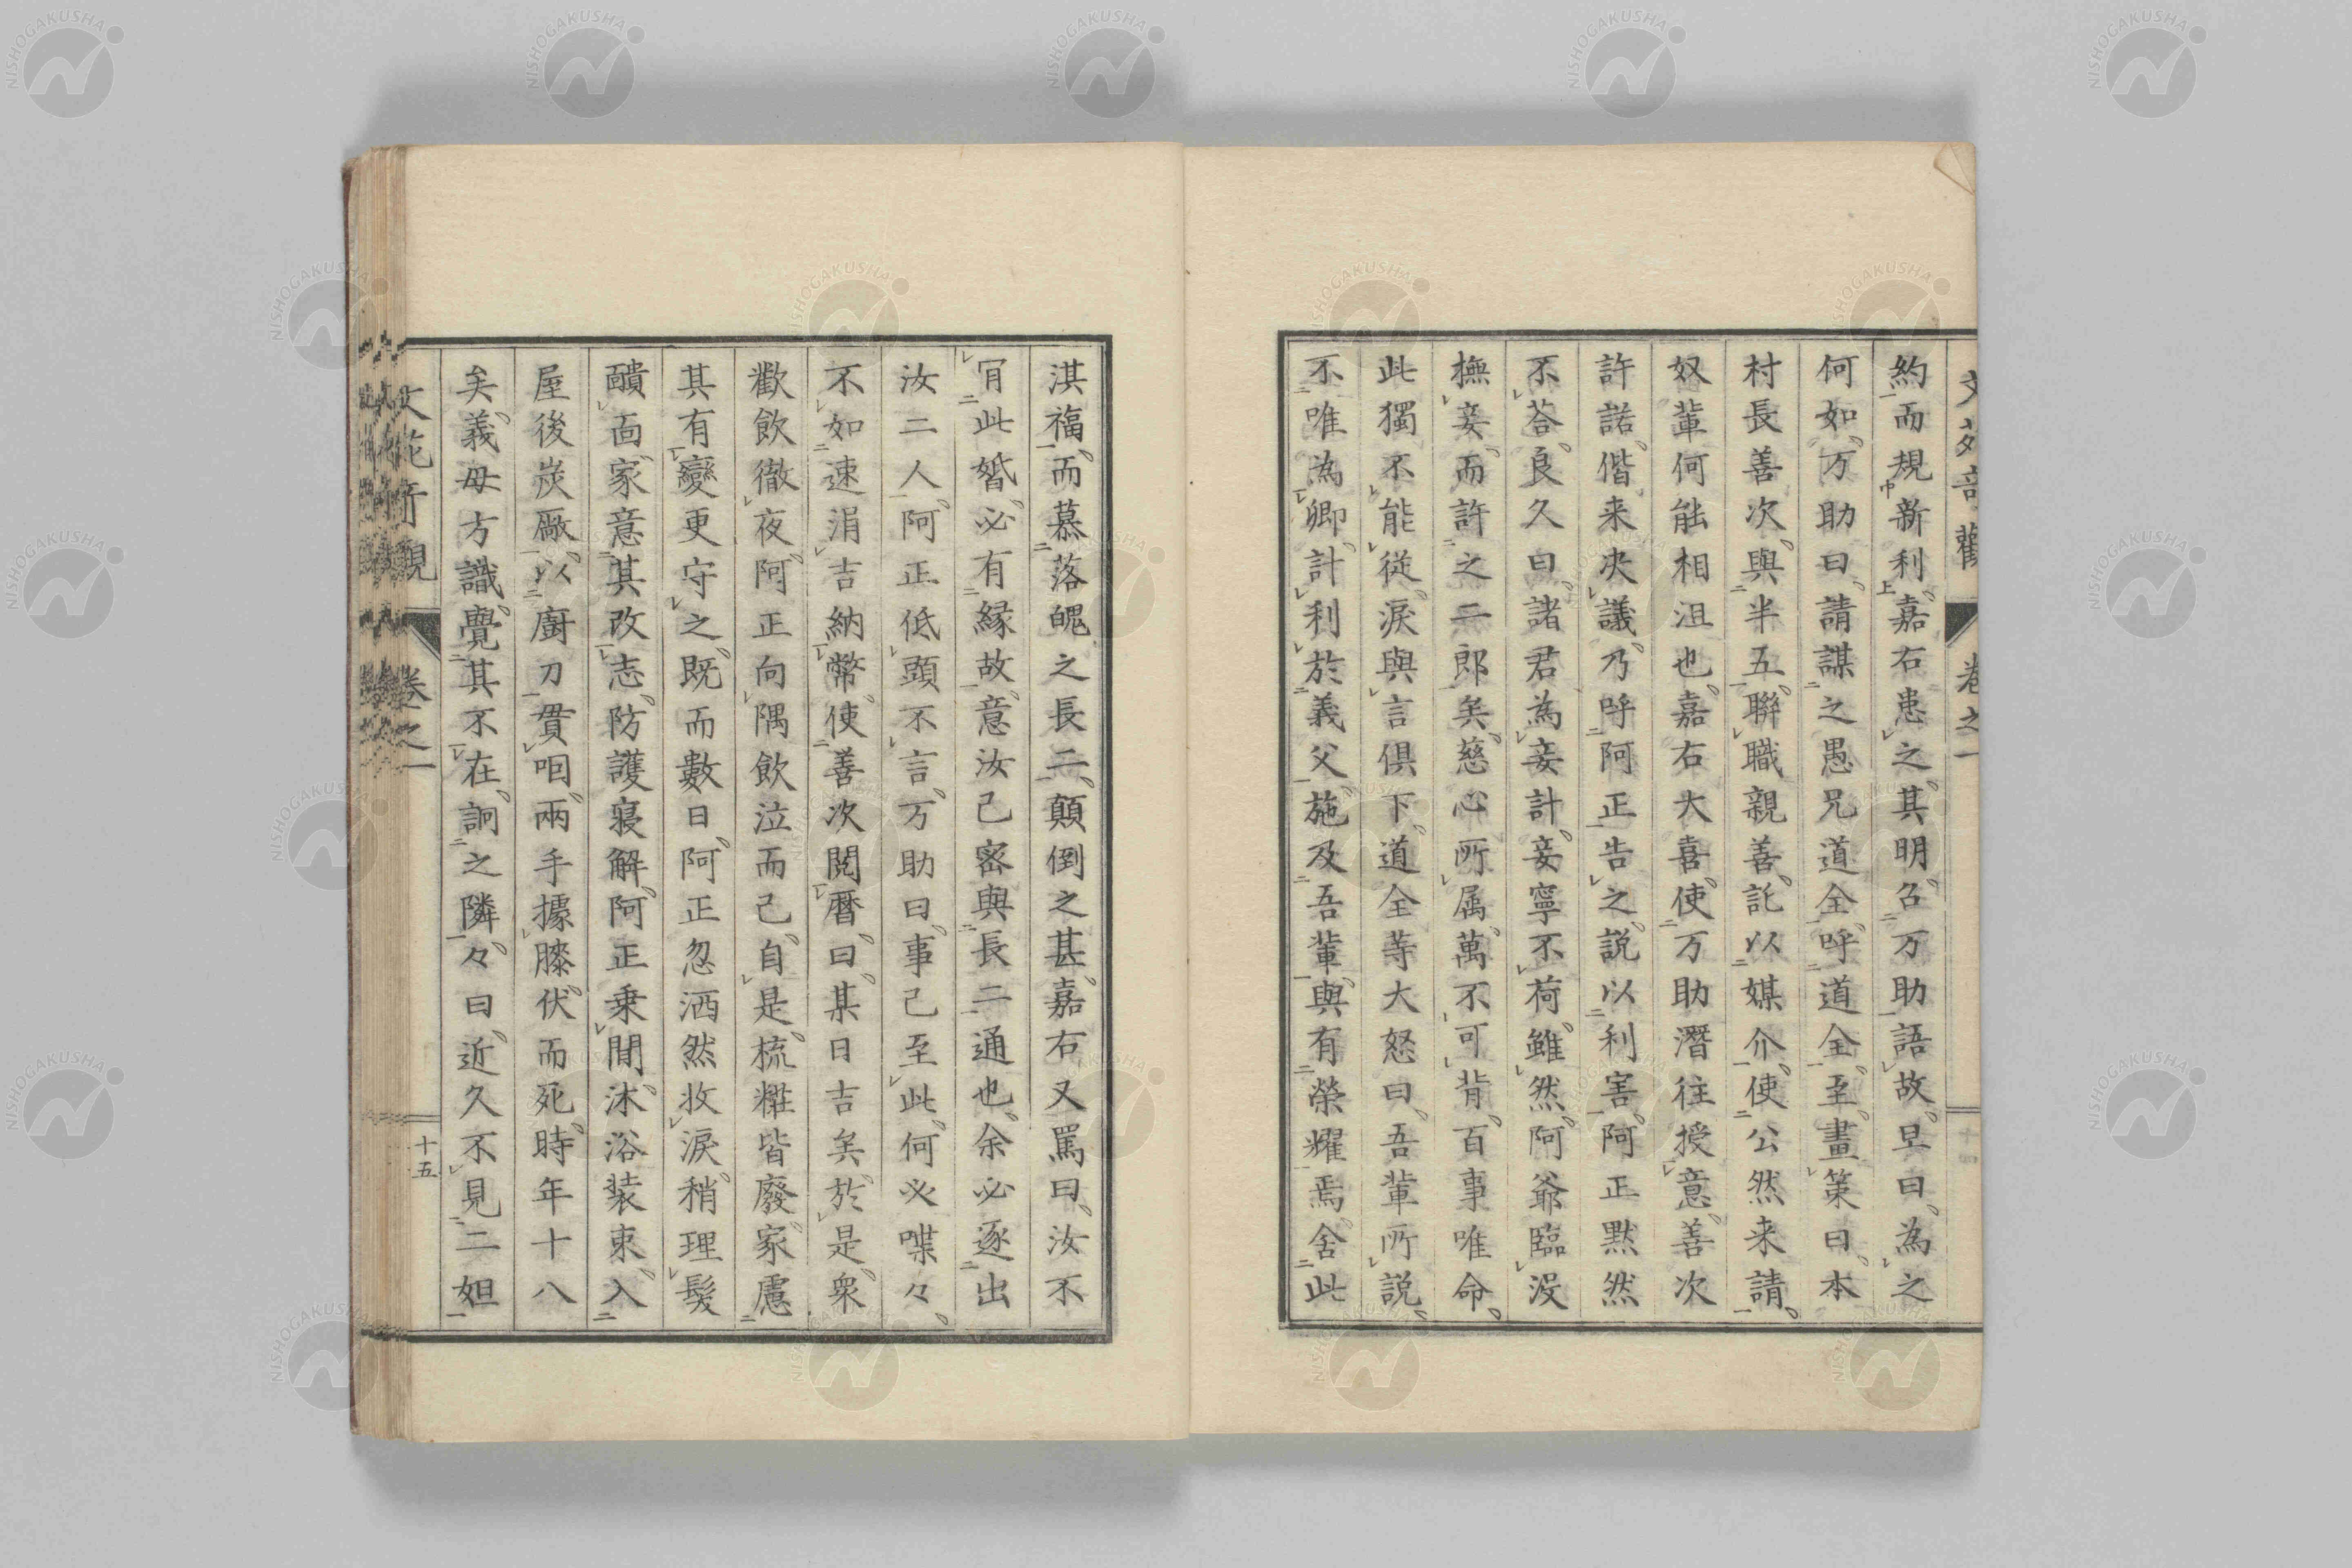 文苑奇觀 卷之一
約而規新利嘉右患之其明召万助語故早曰為之
何如万助曰請謀之愚兄道全呼道全至畫策曰本
村長善次與半五聯職親善託以媒介使公然来請
奴輩何能相沮也嘉右大喜使万助潛往授意善次
許諾偕来决議乃呼阿正告之說以利害阿正黙然
不荅良久曰諸君為妾計妾寧不荷雖然阿爺臨没
撫妾而許之二郎矣慈心所属萬不可背百事唯命
此獨不能從淚與言俱下道全等大怒曰吾輩所説
不唯為卿計利於義父施及吾輩與有榮耀焉舍此
淇福而慕落魄之長二顛倒之甚嘉右又罵曰汝不
肎此婚必有緣故意汝已密與長二通也余必逐出
汝二人阿正低頭不言万助曰事已至此何必喋々
不如速涓吉納幣使善次閲暦曰某日吉矣於是衆
歡飲徹夜阿正向隅飲泣而已自是梳糚皆廢家慮
其有變更守之既而數日阿正忽洒然收淚稍理髮
靧面家意其改志防護寝解阿正乗間沐浴装束入
屋後炭厰以廚刀貫咽兩手據膝伏而死時年十八
矣義母方識覺其不在詗之隣々曰近久不見二妲
文苑奇觀 卷之一 十五
NISHOGAKUSHA